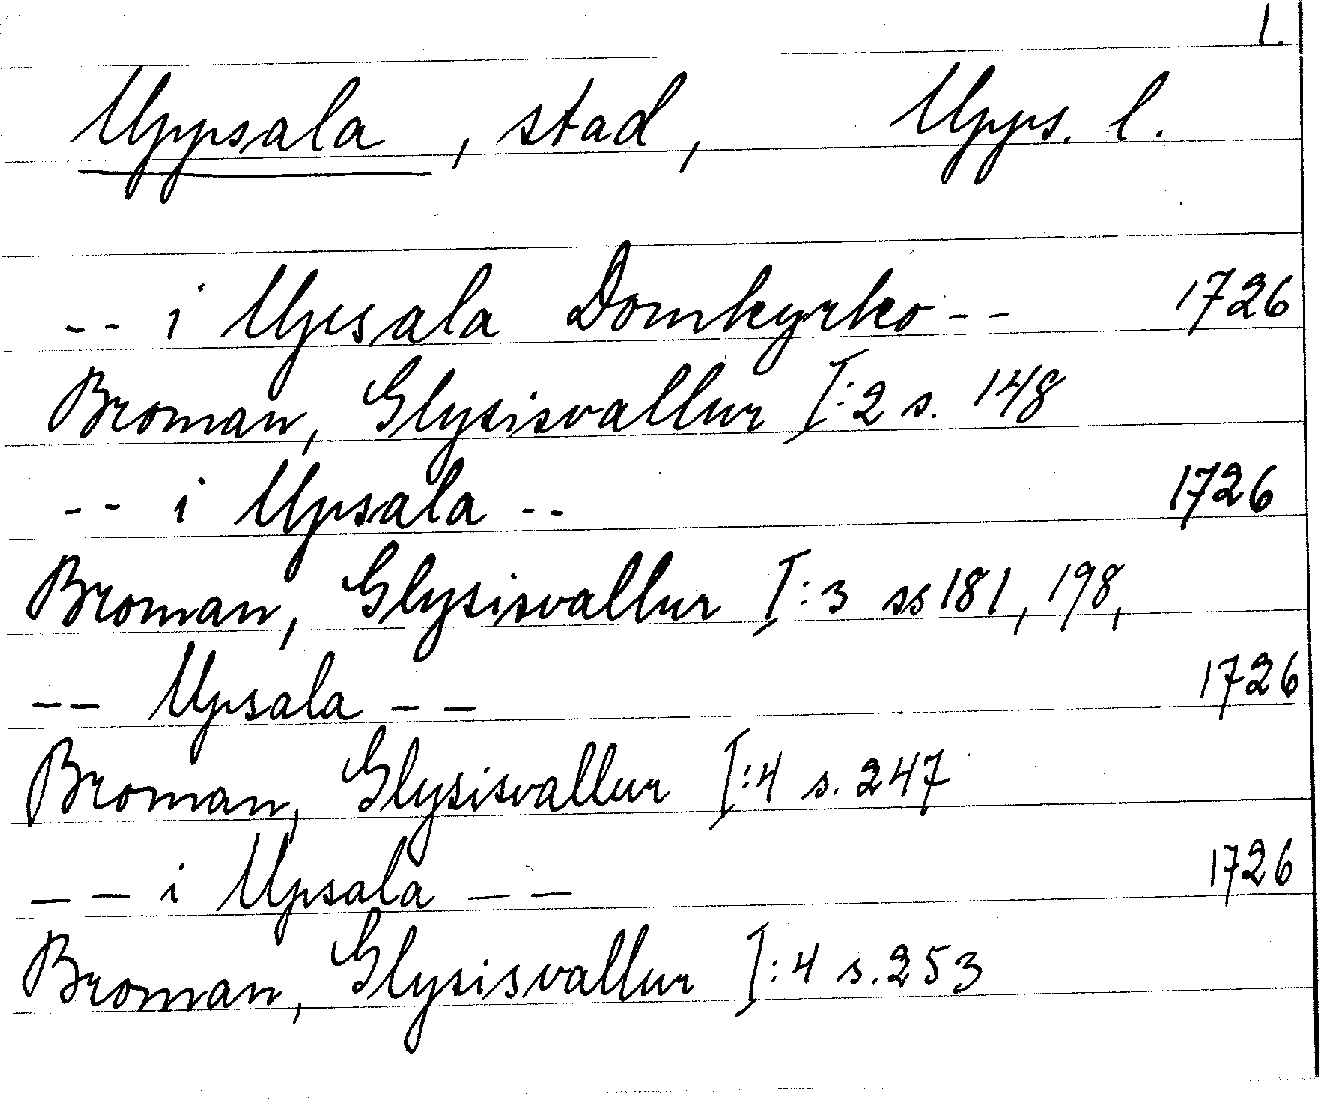 1.
Uppsala, stad, Upps. l.
-- i Upsala Domkyrko -- 1726
Broman, Glysisvallur I:2 s. 148
-- i Upsala -- 1726
Broman, Glysisvallur I:3 ss 181, 198,
-- Upsala -- 1726
Broman, Glysisvallur I:4 s. 247
-- i Upsala -- 1726
Broman, Glysisvallur I:4 s. 253